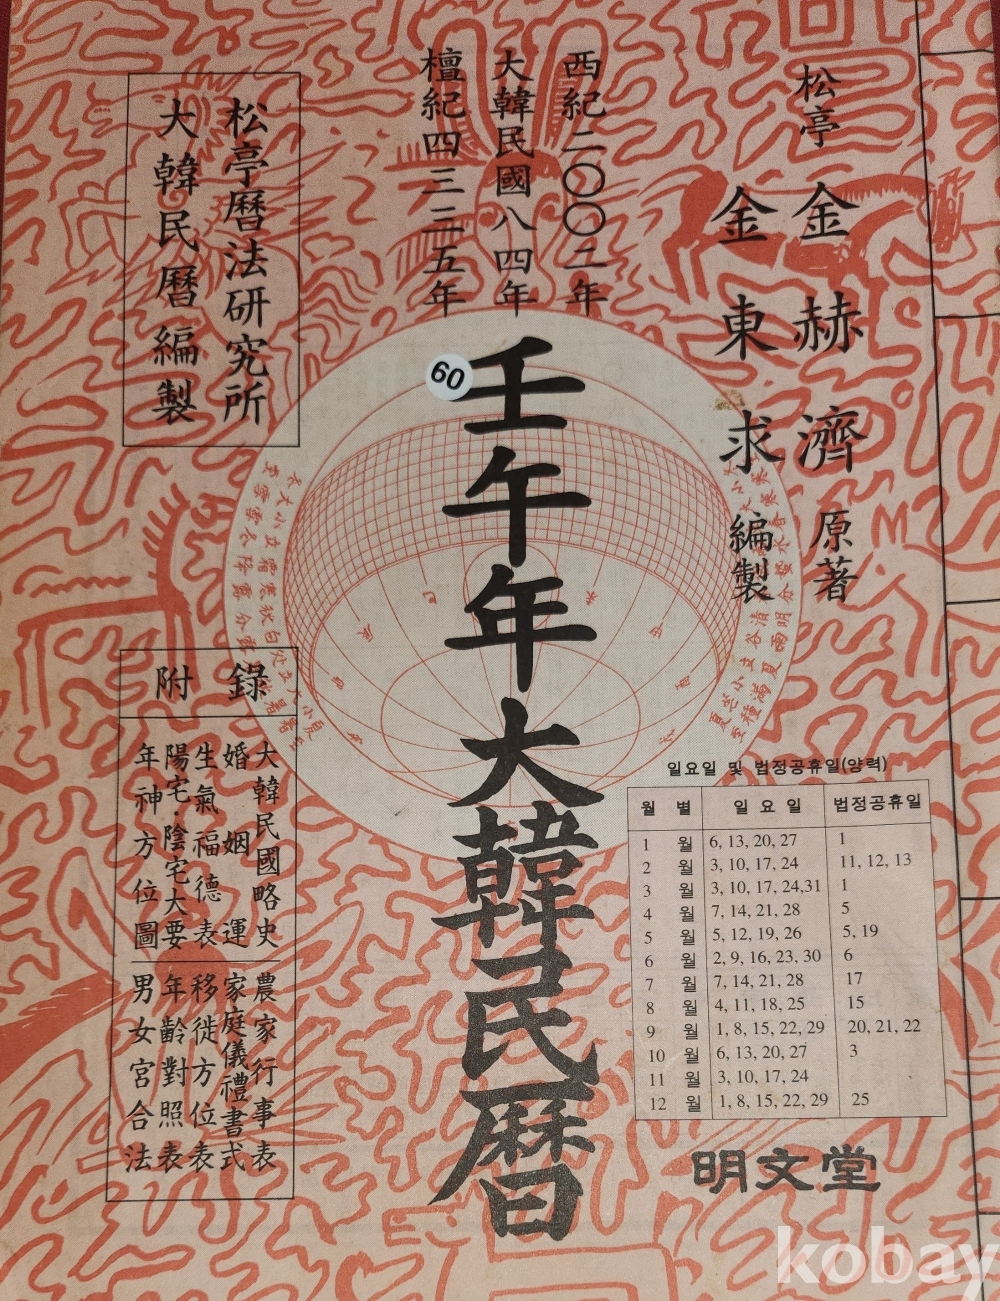 松亭 金赫濟 原著
金東求 編製
西紀二〇〇二年
大韓民國八四年
檀紀四三三五年
松亭曆法研究所
大韓民曆編製
60
壬午年大韓民曆
附錄
大韓民國略史
婚姻運
生氣福德表
陽宅·陰宅大要
年神方位圖
農家行事表
家庭儀禮書式
移徙方位表
年齡對照表
男女宮合法
일요일 및 법정공휴일(양력)
월 별 일 요 일 법정공휴일
1 월 6, 13, 20, 27 1
2 월 3, 10, 17, 24 11, 12, 13
3 월 3, 10, 17, 24,31 1
4 월 7, 14, 21, 28 5
5 월 5, 12, 19, 26 5, 19
6 월 2, 9, 16, 23, 30 6
7 월 7, 14, 21, 28 17
8 월 4, 11, 18, 25 15
9 월 1, 8, 15, 22, 29 20, 21, 22
10 월 6, 13, 20, 27 3
11 월 3, 10, 17, 24
12 월 1, 8, 15, 22, 29 25
明文堂
kobay